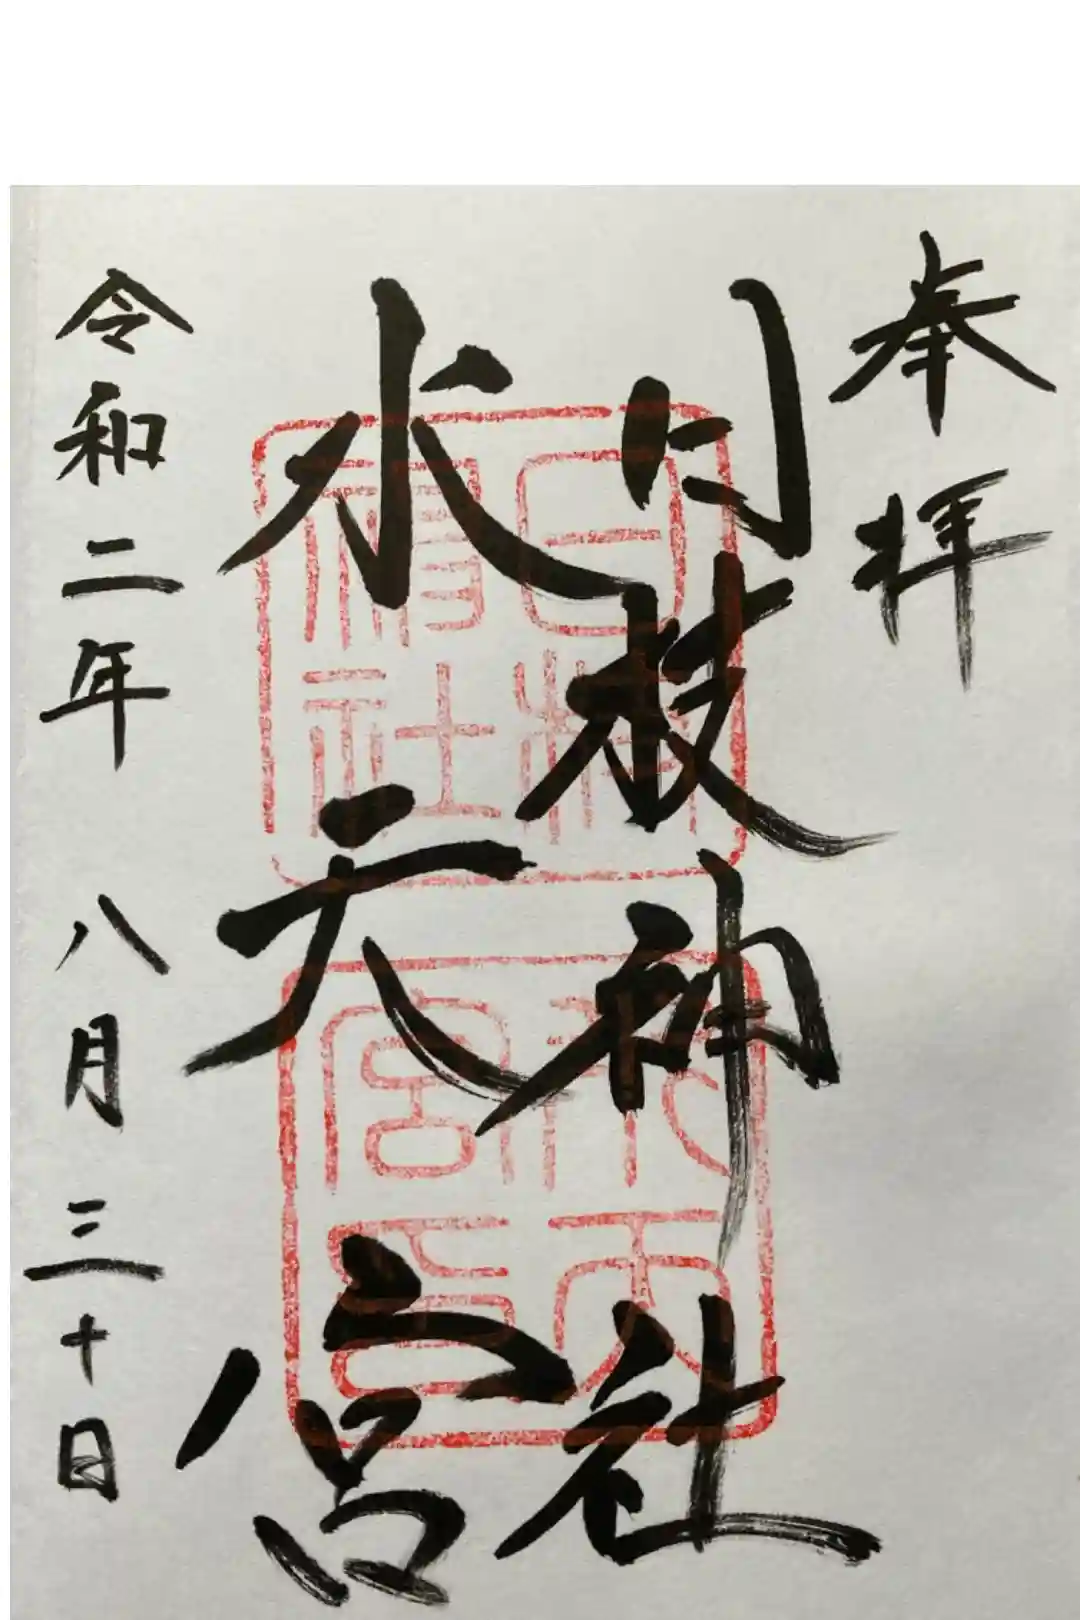 奉拝
日枝神社
水天宮
令和二年 八月三十日
日枝神社
水天宮